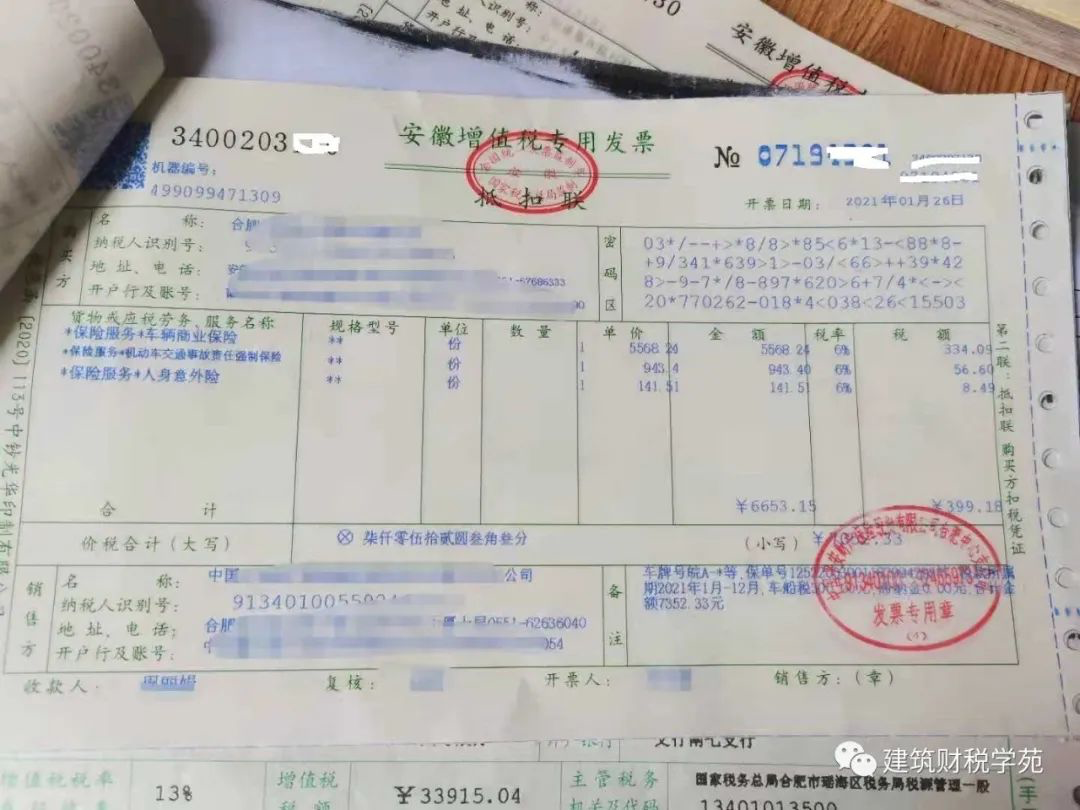 安徽增值税
3400203
安徽增值税专用发票
№ 0719
机器编号:
499099471309
抵扣联
开票日期: 2021年01月26日
购买方
名 称: 合肥
纳税人识别号:
地 址、电 话: 67686333
开户行及账号:
密码区
03*/--+>*8/8>*85<6*13-<88*8-
+9/341*639>1>-03/<66>++39*42
8>-9-7*/8-897*620>6+7/4*<-><
20*770262-018*4<038<26<15503
货物或应税劳务、服务名称 规格型号 单位 数 量 单 价 金 额 税率 税 额
*保险服务*车辆商业保险 ** 份 1 5568.24 5568.24 6% 334.09
*保险服务*机动车交通事故责任强制保险 ** 份 1 943.4 943.40 6% 56.60
*保险服务*人身意外险 ** 份 1 141.51 141.51 6% 8.49
合 计 ¥6653.15 ¥399.18
价税合计(大写) ⊗ 柒仟零伍拾贰圆叁角叁分 (小写)
销售方
名 称: 中国 公司
纳税人识别号: 91340100559
地 址、电 话: 合肥 0551-62636040
开户行及账号: 054
备注
车牌号皖A-*等,保单号
期2021年1月-12月,车船税
额7352.33元
发票专用章
收款人: 复核: 开票人: 销售方:(章)
第二联:抵扣联 购买方扣税凭证
[2020]113号中钞光华印制有限公司
增值税税率 13% 增值税税额 ¥33915.04 主管税务机关及代码 国家税务总局合肥市瑶海区税务局税源管理一股
13401013500
建筑财税学苑